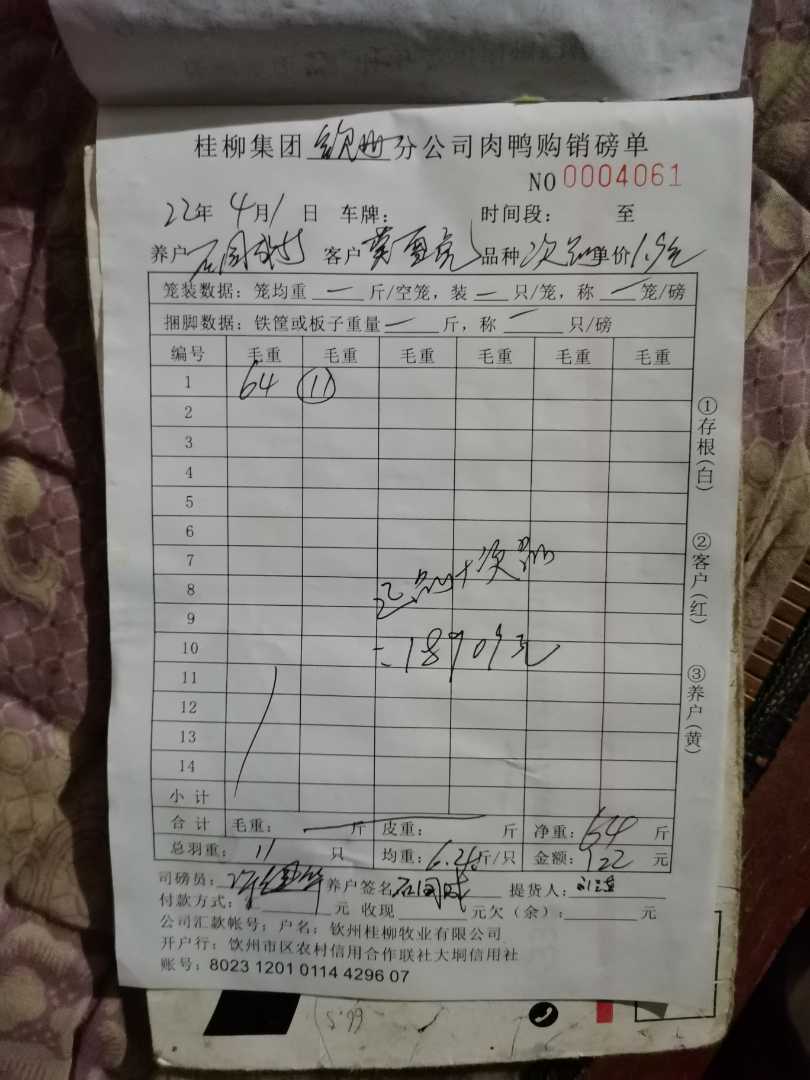 桂柳集团 钦州 分公司肉鸭购销磅单
NO 0004061
22年 4月1日 车牌: 时间段: 至
养户 石国成 客户 黄雪亮 品种 次品 单价 1.9元
笼装数据: 笼均重 — 斤/空笼, 装 — 只/笼, 称 — 笼/磅
捆脚数据: 铁筐或板子重量 — 斤, 称 — 只/磅
编号 毛重 毛重 毛重 毛重 毛重 毛重
1 64 ⑪
2
3
4
5
6
7
8
正品+次品
9
10 =18709元
11
12
13
14
小计
合计 毛重: — 斤 皮重: 斤 净重: 64 斤
总羽重: 11 只 均重: 斤/只 金额: 122 元
司磅员: 养户签名 石国成 提货人:
付款方式: 元 收现 元欠(余): 元
公司汇款帐号; 户名: 钦州桂柳牧业有限公司
开户行: 钦州市区农村信用合作联社大垌信用社
账号: 8023 1201 0114 4296 07
①存根(白)
②客户(红)
③养户(黄)